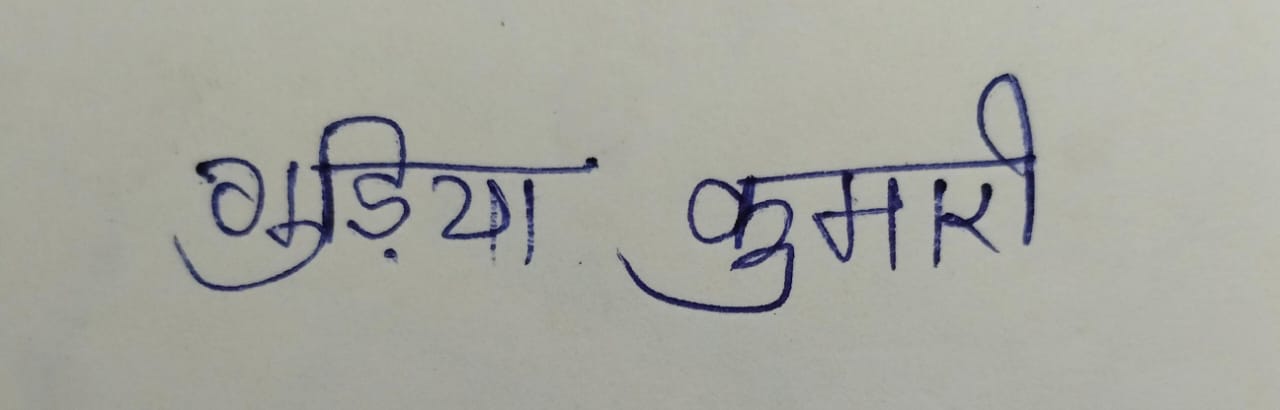 गुड़िया कुमारी